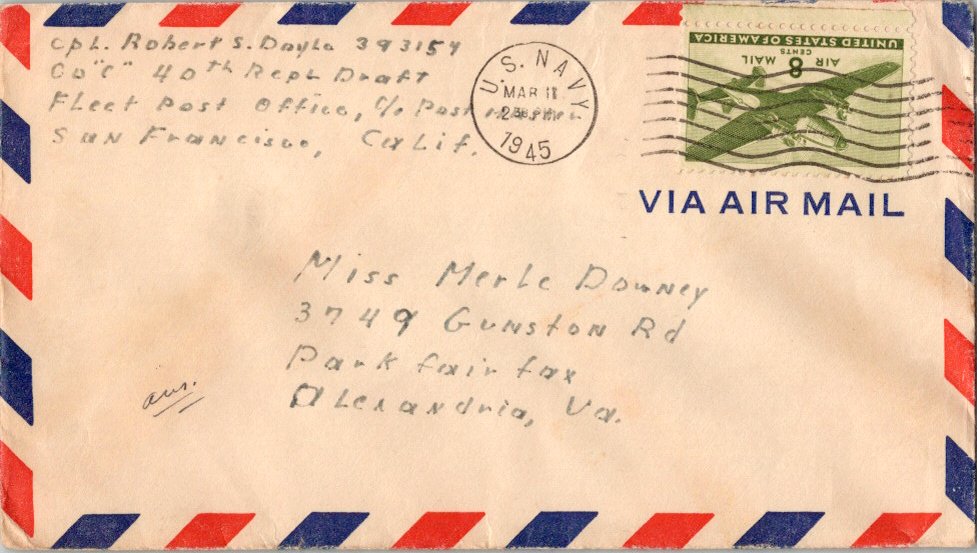 Cpl. Robert S. Doyle 393154
Co "C" 40th Repl Draft
Fleet Post Office, c/o Postmaster
San Francisco, Calif.
U.S. NAVY
MAR 11
1945
UNITED STATES OF AMERICA
CENTS
AIR 8 MAIL
VIA AIR MAIL
Miss Merle Downey
3749 Gunston Rd
Parkfairfax
Alexandria, Va.
ans.